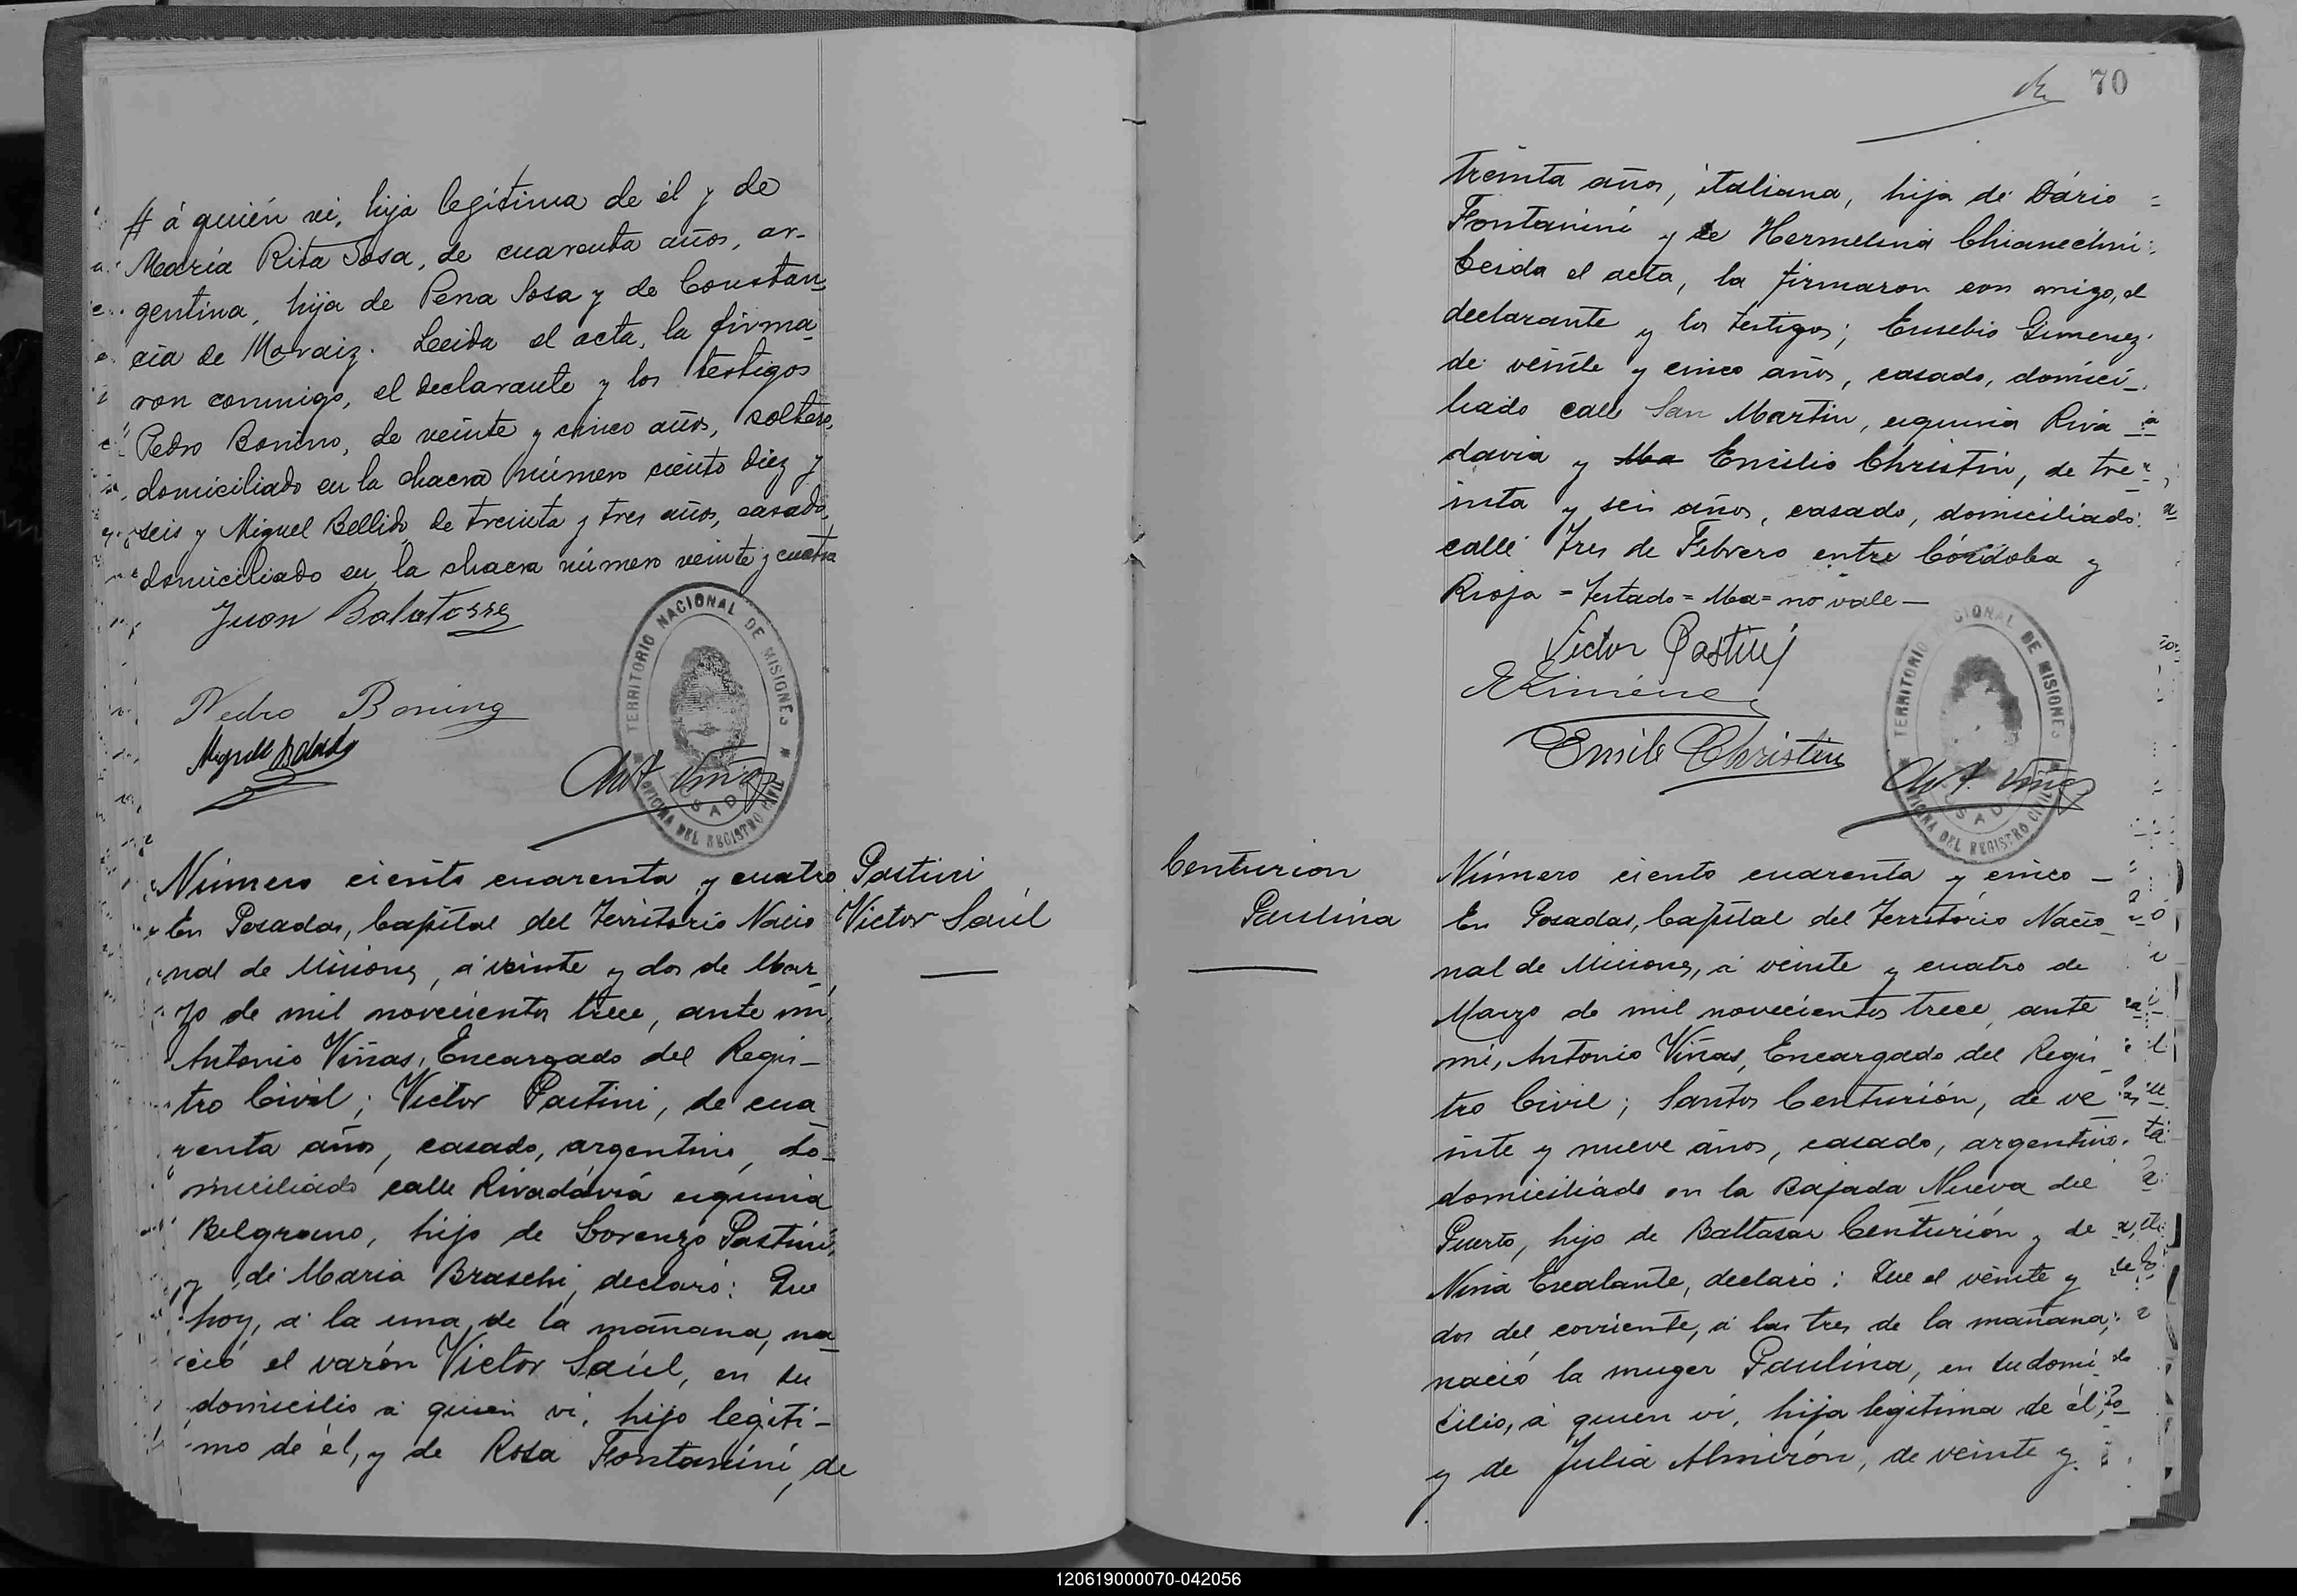 # á quién vi, hija legítima de él y de
María Rita Sosa, de cuarenta años, ar-
gentina, hija de Pena Sosa y de Constan-
cia de Moraiz. Leida el acta, la firma-
ron conmigo, el declarante y los testigos
Pedro Bonino, de veinte y cinco años, soltero,
domiciliado en la chacra número ciento diez y
seis y Miguel Bellido, de treinta y tres años, casado,
domiciliado en la chacra número veinte y cuatro
Juan Balatorre
Pedro Bonino
Miguel Bellido
Ant Viñas
TERRITORIO NACIONAL DE MISIONES
OFICINA DEL REGISTRO CIVIL
Número ciento cuarenta y cuatro
En Posadas, Capital del Territorio Nacio
nal de Misiones, á veinte y dos de Mar-
zo de mil novecientos trece, ante mi,
Antonio Viñas, Encargado del Regis-
tro Civil; Victor Pastini, de cua
renta años, casado, argentino, do-
miciliado calle Rivadavia esquina
Belgrano, hijo de Lorenzo Pastini,
y de Maria Braschi, declaró: Que
hoy, á la una de la mañana, na-
ció el varón Victor Saúl, en su
domicilio á quien vi, hijo legíti-
mo de él, y de Rosa Fontanini, de
Pastini
Victor Saúl
70
treinta años, italiana, hija de Dário
Fontanini y de Hermelina Chianechini
Leida el acta, la firmaron con migo, el
declarante y los testigos; Eusebio Gimenez
de veinte y cinco años, casado, domici-
liado calle San Martin, esquina Riva
davia y Ma Emilio Christin, de tre-
inta y seis años, casado, domiciliado
calle Tres de Febrero entre Córdoba y
Rioja = Testado = Ma = no vale —
Victor Pastini
E Ximenez
Emile Christin
Ant. Viñas
TERRITORIO NACIONAL DE MISIONES
OFICINA DEL REGISTRO CIVIL
Centurion
Paulina
Número ciento cuarenta y cinco —
En Posadas, Capital del Territorio Nacio-
nal de Misiones, á veinte y cuatro de
Marzo de mil novecientos trece, ante
mi, Antonio Viñas, Encargado del Regis-
tro Civil; Santos Centurión, de ve
inte y nueve años, casado, argentino,
domiciliado en la Bajada Nueva del
Puerto, hijo de Baltasar Centurión y de
Nina Escalante, declaró: Que el veinte y
dos del corriente, á las tres de la mañana,
nació la muger Paulina, en su domi-
cilio, á quien vi, hija legítima de él,
y de Julia Almirón, de veinte y
120619000070-042056